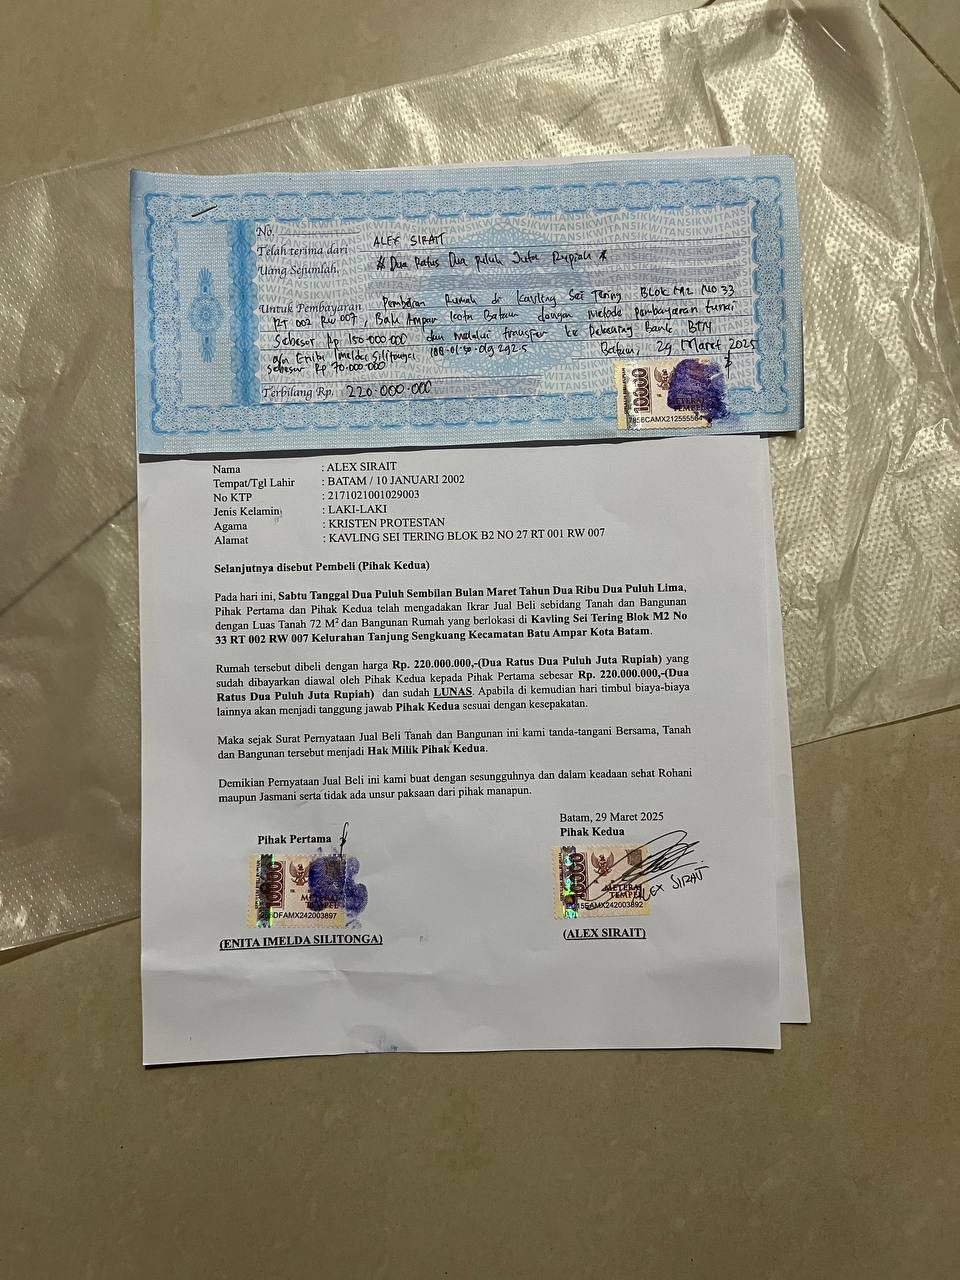 No.
Telah terima dari ALEX SIRAIT
Uang Sejumlah, # Dua Ratus Dua Puluh Juta Rupiah #
Untuk Pembayaran Pembelian Rumah di Kavling Sei Tering Blok M2 No 33
RT 002 RW 007, Batu Ampar Kota Batam dengan metode Pembayaran tunai
Sebesar Rp 150.000.000 dan melalui transfer ke Bank BTN
a/n Enita Imelda Silitonga
Sebesar Rp 70.000.000
Batam, 29 Maret 2025
Terbilang Rp. 220.000.000
10000
METERAI
TEMPEL
Nama : ALEX SIRAIT
Tempat/Tgl Lahir : BATAM / 10 JANUARI 2002
No KTP : 2171021001029003
Jenis Kelamin : LAKI-LAKI
Agama : KRISTEN PROTESTAN
Alamat : KAVLING SEI TERING BLOK B2 NO 27 RT 001 RW 007
Selanjutnya disebut Pembeli (Pihak Kedua)
Pada hari ini, Sabtu Tanggal Dua Puluh Sembilan Bulan Maret Tahun Dua Ribu Dua Puluh Lima,
Pihak Pertama dan Pihak Kedua telah mengadakan Ikrar Jual Beli sebidang Tanah dan Bangunan
dengan Luas Tanah 72 M² dan Bangunan Rumah yang berlokasi di Kavling Sei Tering Blok M2 No
33 RT 002 RW 007 Kelurahan Tanjung Sengkuang Kecamatan Batu Ampar Kota Batam.
Rumah tersebut dibeli dengan harga Rp. 220.000.000,-(Dua Ratus Dua Puluh Juta Rupiah) yang
sudah dibayarkan diawal oleh Pihak Kedua kepada Pihak Pertama sebesar Rp. 220.000.000,-(Dua
Ratus Dua Puluh Juta Rupiah) dan sudah LUNAS. Apabila di kemudian hari timbul biaya-biaya
lainnya akan menjadi tanggung jawab Pihak Kedua sesuai dengan kesepakatan.
Maka sejak Surat Pernyataan Jual Beli Tanah dan Bangunan ini kami tanda-tangani Bersama, Tanah
dan Bangunan tersebut menjadi Hak Milik Pihak Kedua.
Demikian Pernyataan Jual Beli ini kami buat dengan sesungguhnya dan dalam keadaan sehat Rohani
maupun Jasmani serta tidak ada unsur paksaan dari pihak manapun.
Batam, 29 Maret 2025
Pihak Pertama Pihak Kedua
10000 10000
METERAI METERAI
TEMPEL TEMPEL
ALEX SIRAIT
(ENITA IMELDA SILITONGA) (ALEX SIRAIT)